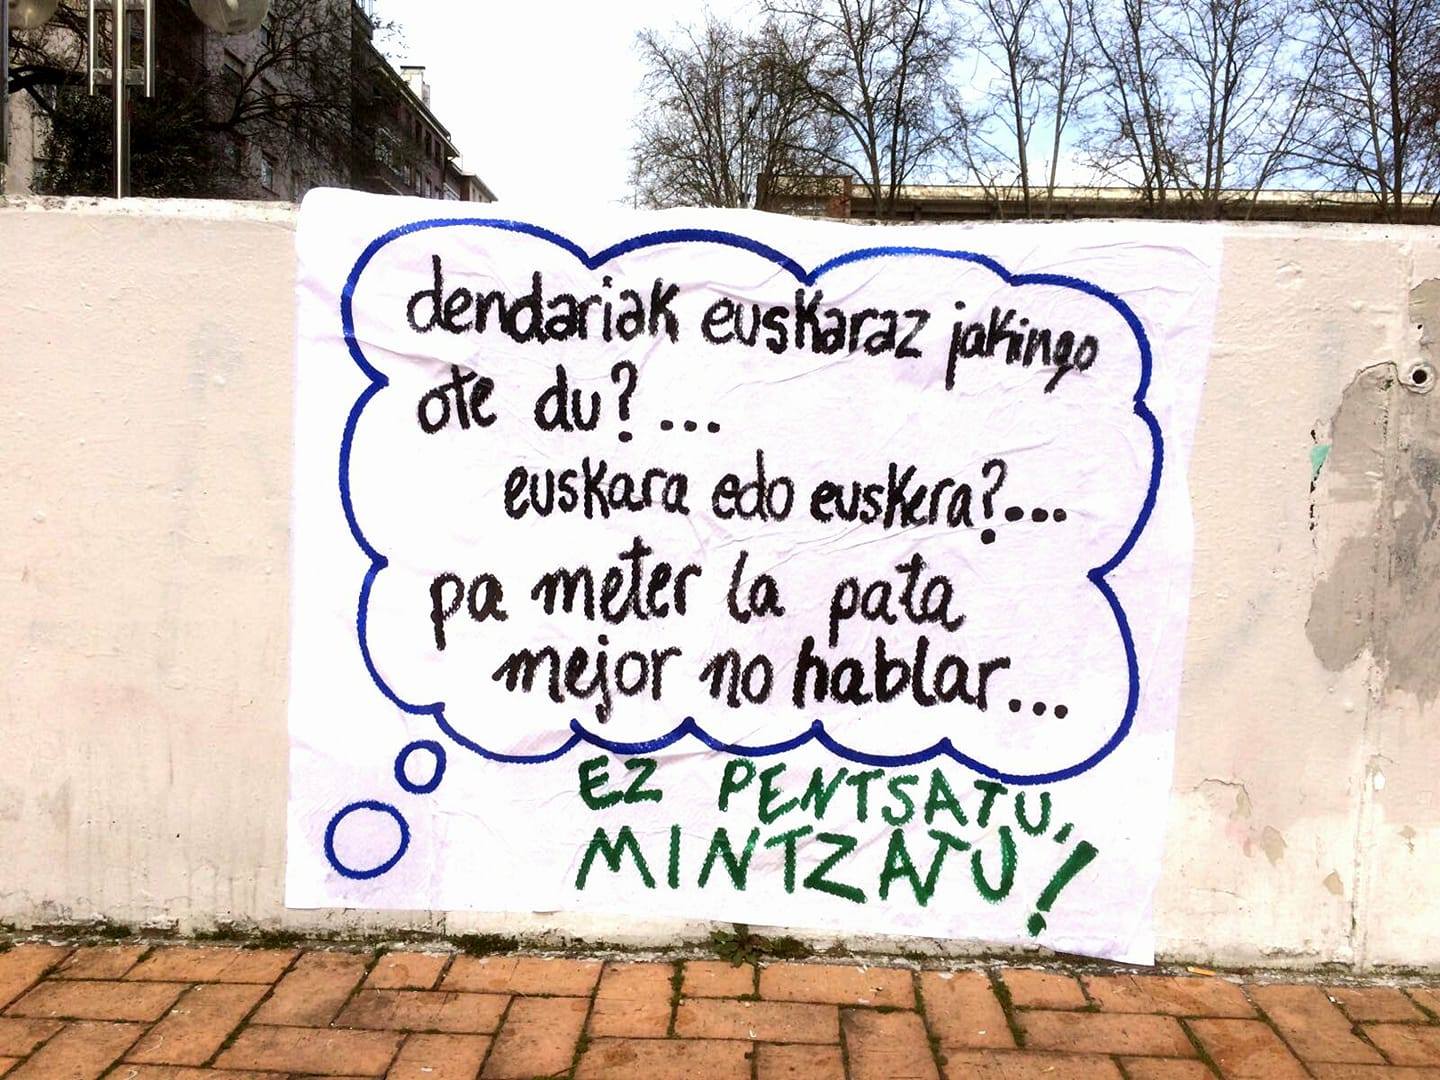 dendariak euskaraz jakingo
ote du?...
euskara edo euskera?...
pa meter la pata
mejor no hablar...
EZ PENTSATU,
MINTZATU!